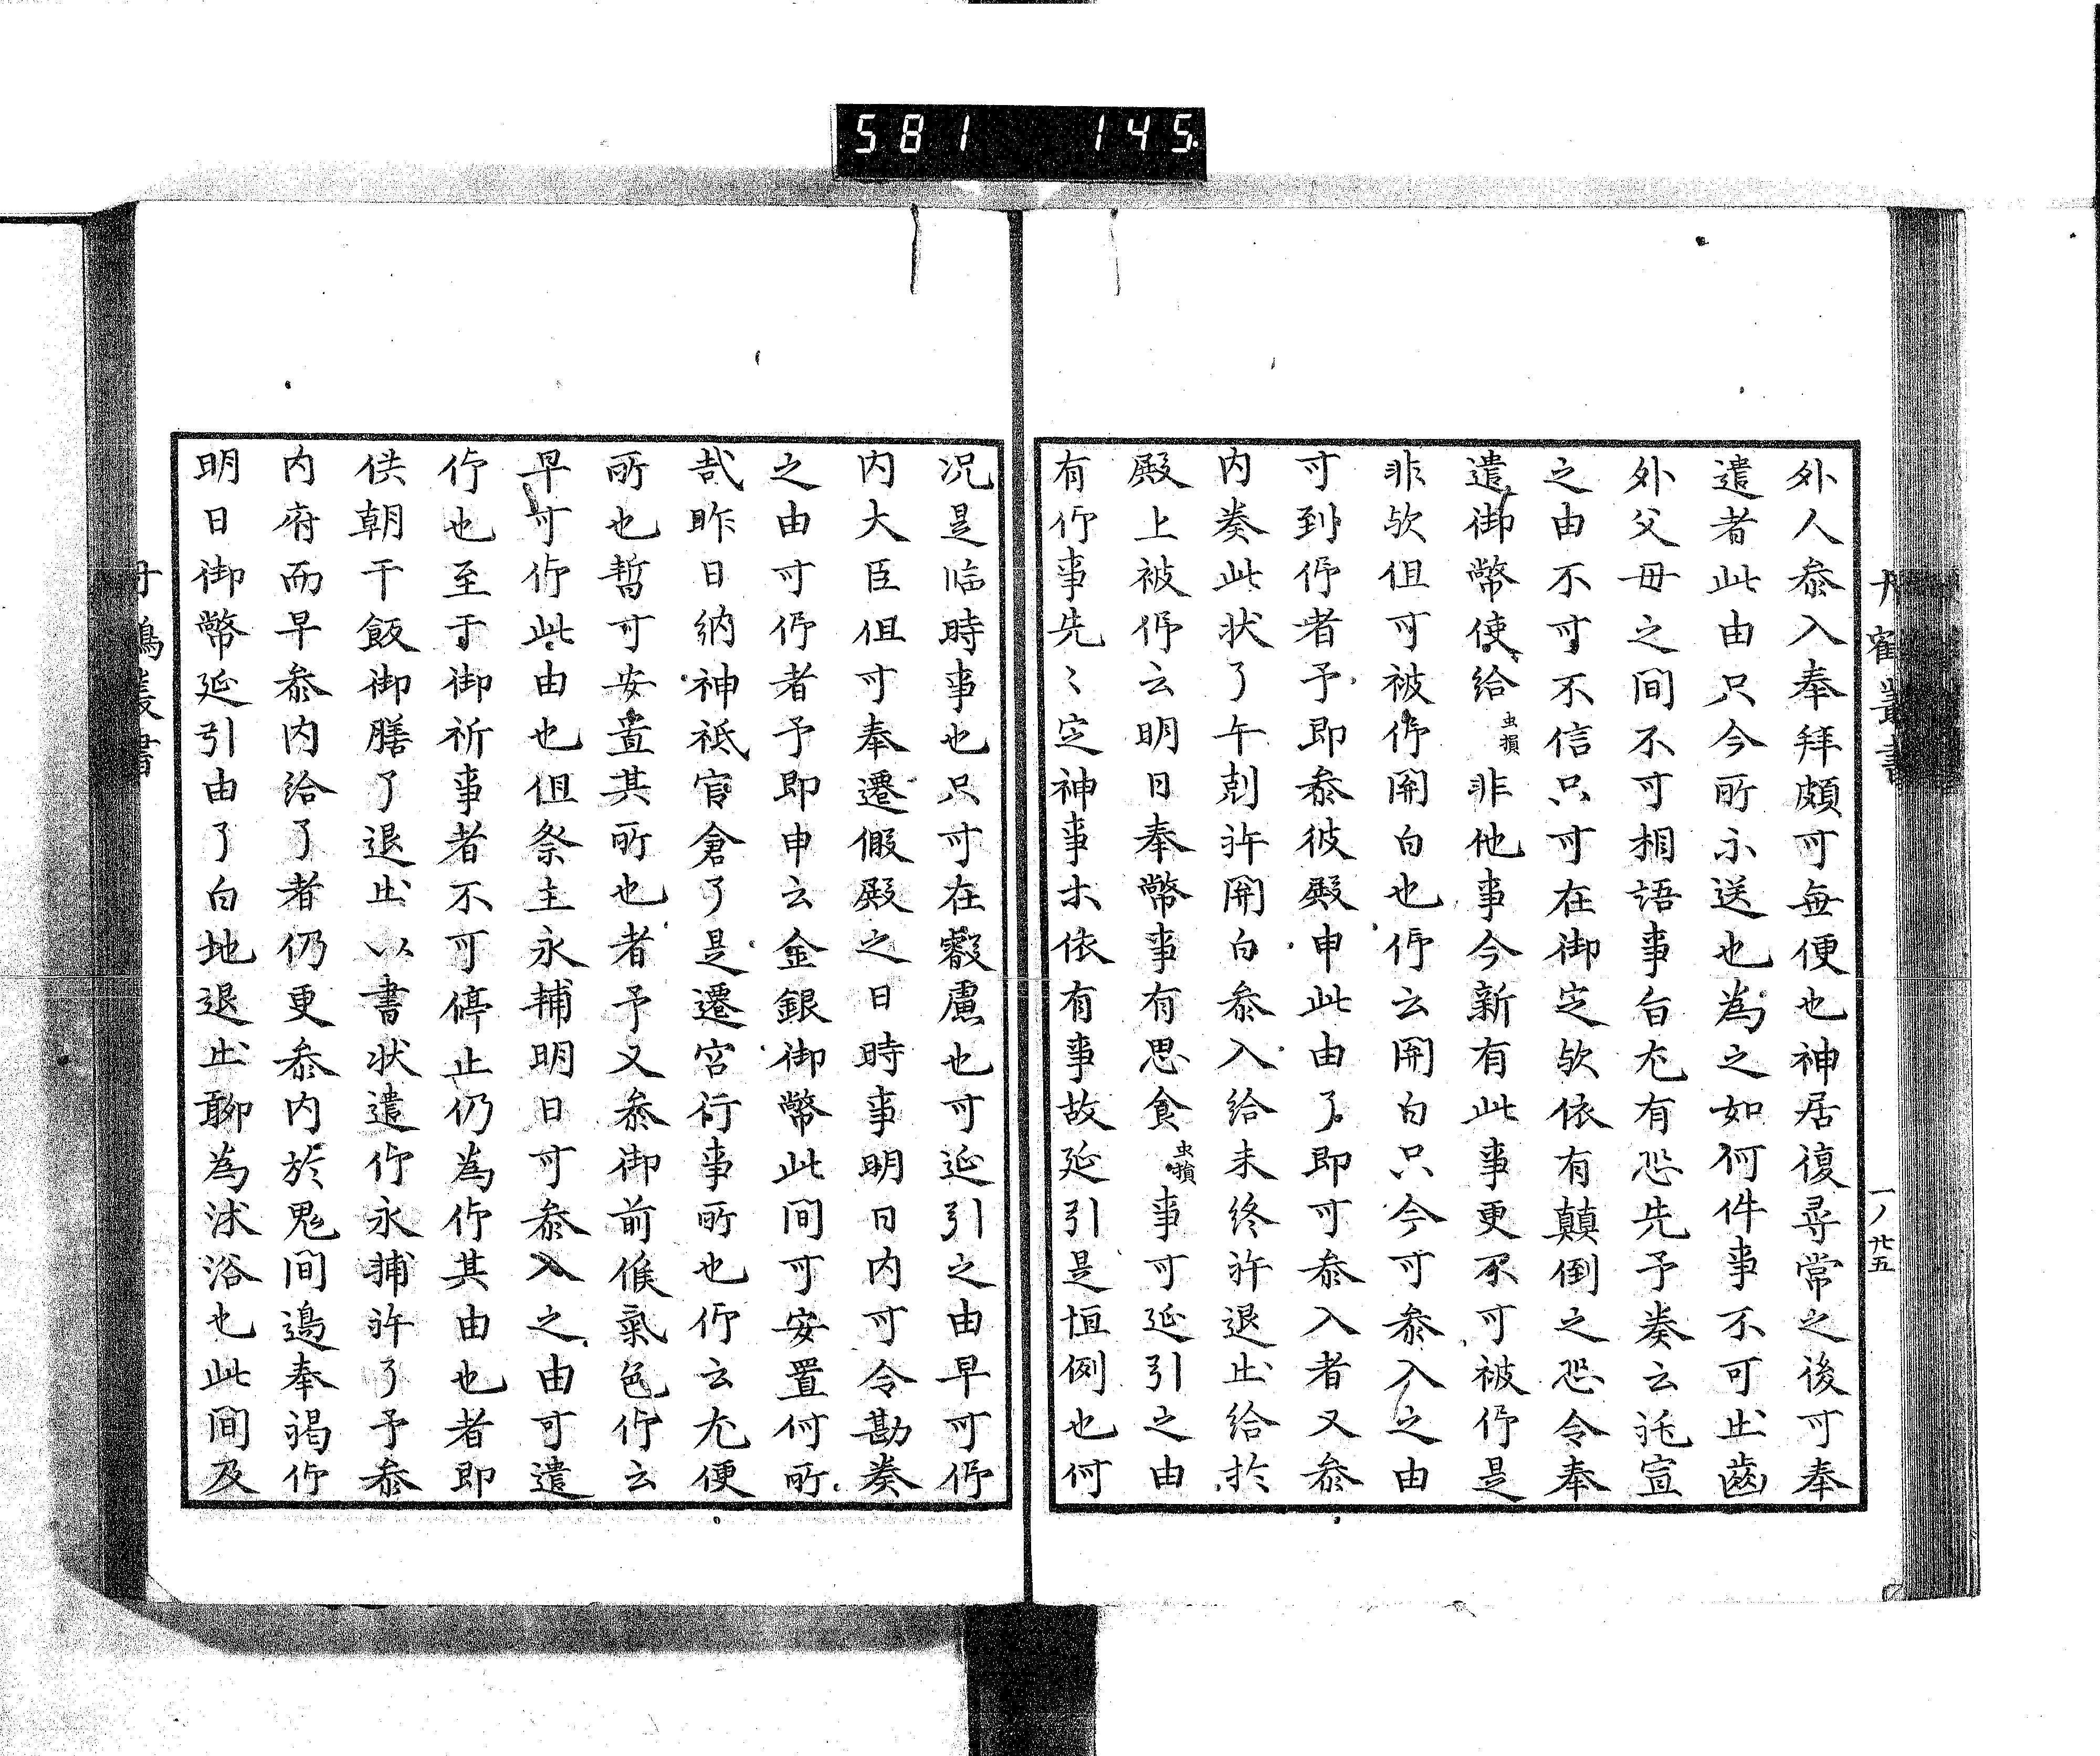 581 145
丹鶴叢書
一ノ廿五
外人叅入奉拜頗可無便也神居復尋常之後可奉
遣者此由只今所示送也為之如何件事不可出齒
外父母之間不可相語事旨尤有恐先予奏云託宣
之由不可不信只可在御定欤依有顛倒之恐令奉
遣御幣使給虫損非他事今新有此事更不可被仰是
非欤但可被仰関白也仰云関白只今可叅入之由
可到仰者予即叅彼殿申此由了即可叅入者又叅
内奏此状了午剋許関白叅入給未終許退出給於
殿上被仰云明日奉幣事有思食虫損事可延引之由
有仰事先〻定神事木依有事故延引是恒例也何
况是臨時事也只可在叡慮也可延引之由早可仰
内大臣但可奉遷假殿之日時事明日内可令勘奏
之由可仰者予即申云金銀御幣此間可安置何所
哉昨日納神祇官倉了是遷宮行事所也仰云尤便
所也暫可安置其所也者予又叅御前候氣色仰云
早可仰此由也但祭主永輔明日可叅入之由可遣
仰也至于御祈事者不可停止仍為仰其由也者即
供朝干飯御膳了退出以書状遣仰永捕許了予叅
内府而早叅内給了者仍更叅内於鬼間邉奉謁仰
明日御幣延引由了白地退出聊為沐浴也此間及
丹鶴叢書